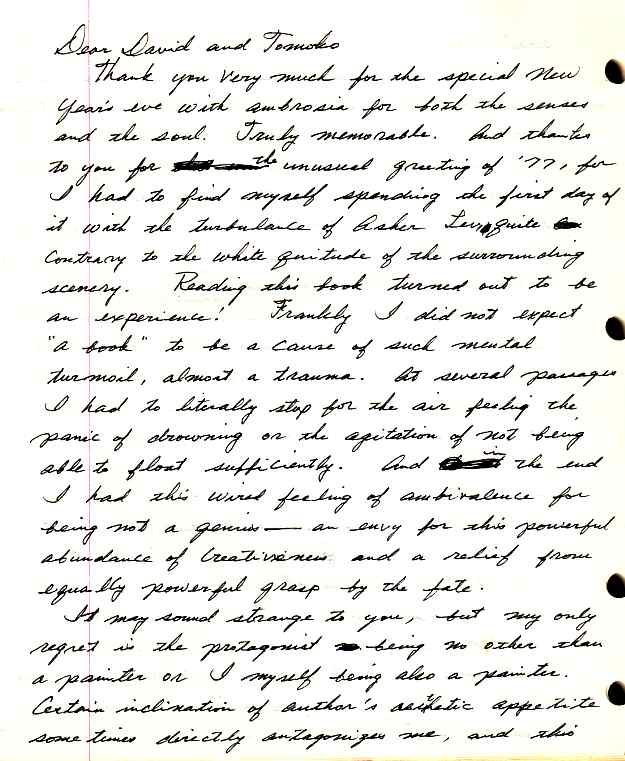 Dear David and Tomoko
Thank you very much for the special New
Year's eve with ambrosia for both the senses
and the soul. Truly memorable. And thanks
to you for the unusual greeting of '77, for
I had to find myself spending the first day of
it with the turbulance of Asher Lev, quite
contrary to the white quitude of the surrounding
scenery. Reading this book turned out to be
an experience! Frankly I did not expect
"a book" to be a cause of such mental
turmoil, almost a trauma. At several passages
I had to literally stop for the air feeling the
panic of drowning or the agitation of not being
able to float sufficiently. And in the end
I had this wired feeling of ambivalence for
being not a genius — an envy for this powerful
abundance of creativeness and a relief from
equally powerful grasp by the fate.
It may sound strange to you, but my only
regret is the protagonist being no other than
a painter or I myself being also a painter.
Certain inclination of author's aesthetic appetite
sometimes directly antagonizes me, and this